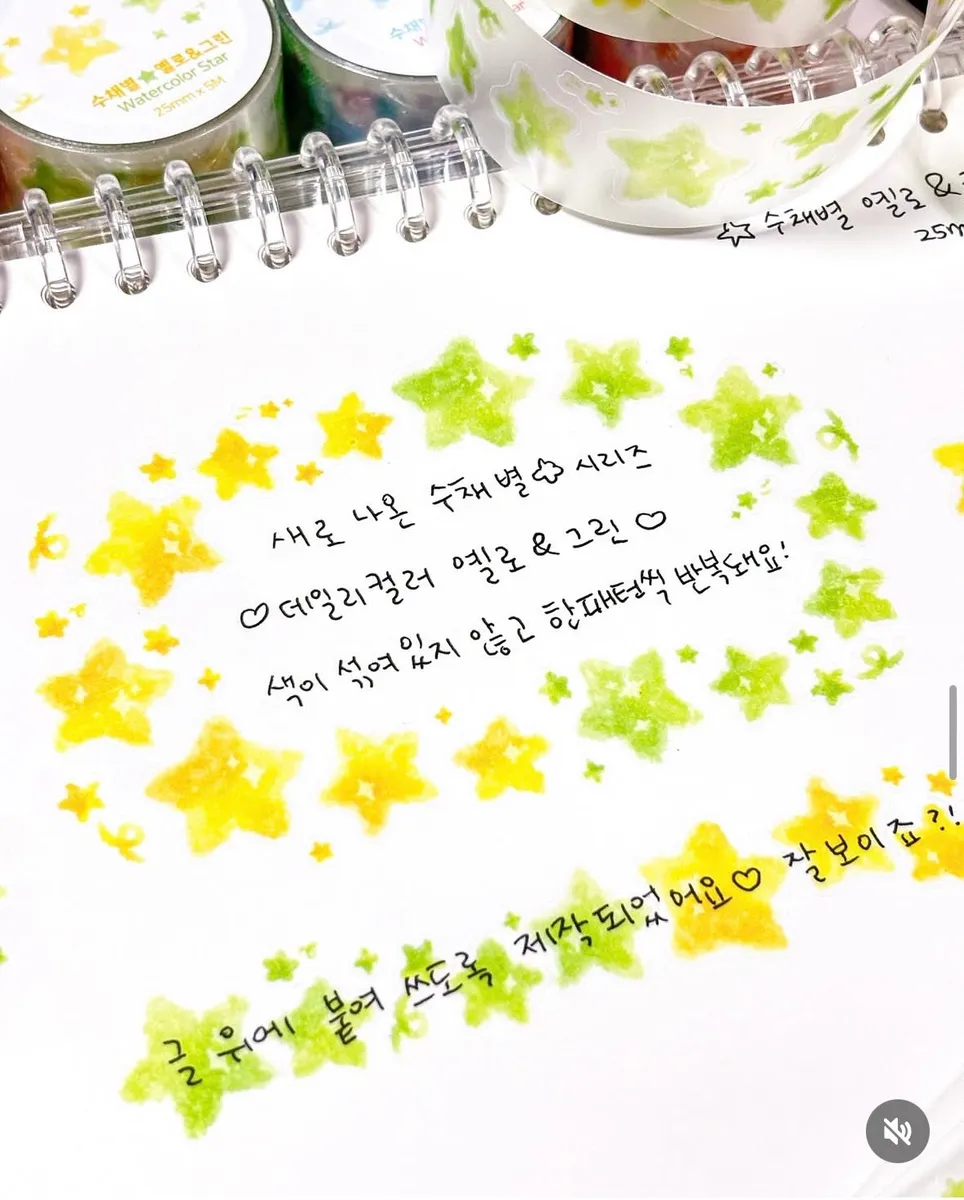 수채별★옐로&그린
Watercolor Star
25mm x 5M
☆ 수채별 옐로 &
25m
새로 나온 수채별☆시리즈
♡데일리컬러 옐로&그린♡
색이 섞여있지 않고 한패턴씩 반복돼요!
글 위에 붙여 쓰도록 제작되었어요♡ 잘보이죠?!